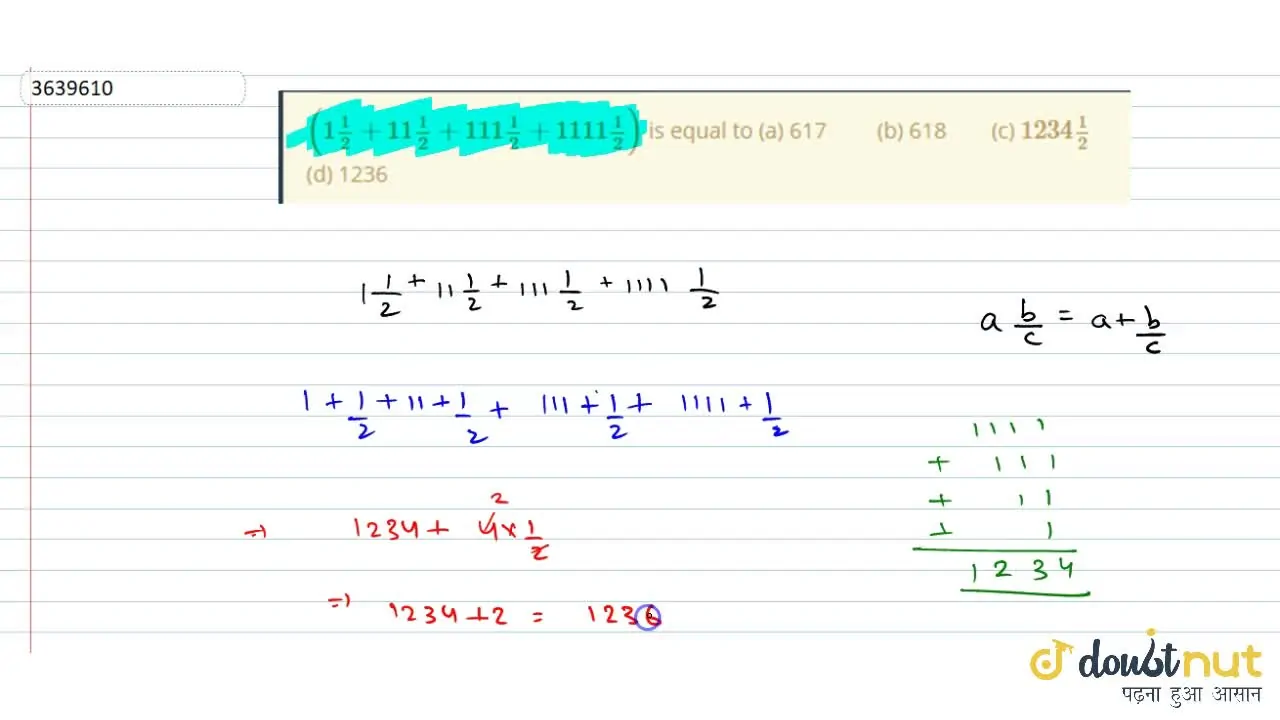 3639610
(1 1/2 + 11 1/2 + 111 1/2 + 1111 1/2) is equal to (a) 617 (b) 618 (c) 1234 1/2
(d) 1236
1 1/2 + 11 1/2 + 111 1/2 + 1111 1/2
a b/c = a + b/c
1 + 1/2 + 11 + 1/2 + 111 + 1/2 + 1111 + 1/2
1111
+ 111
+ 11
+ 1
1234
2
⇒ 1234 + 4 × 1/2
⇒ 1234 + 2 = 1236
doubtnut
पढ़ना हुआ आसान